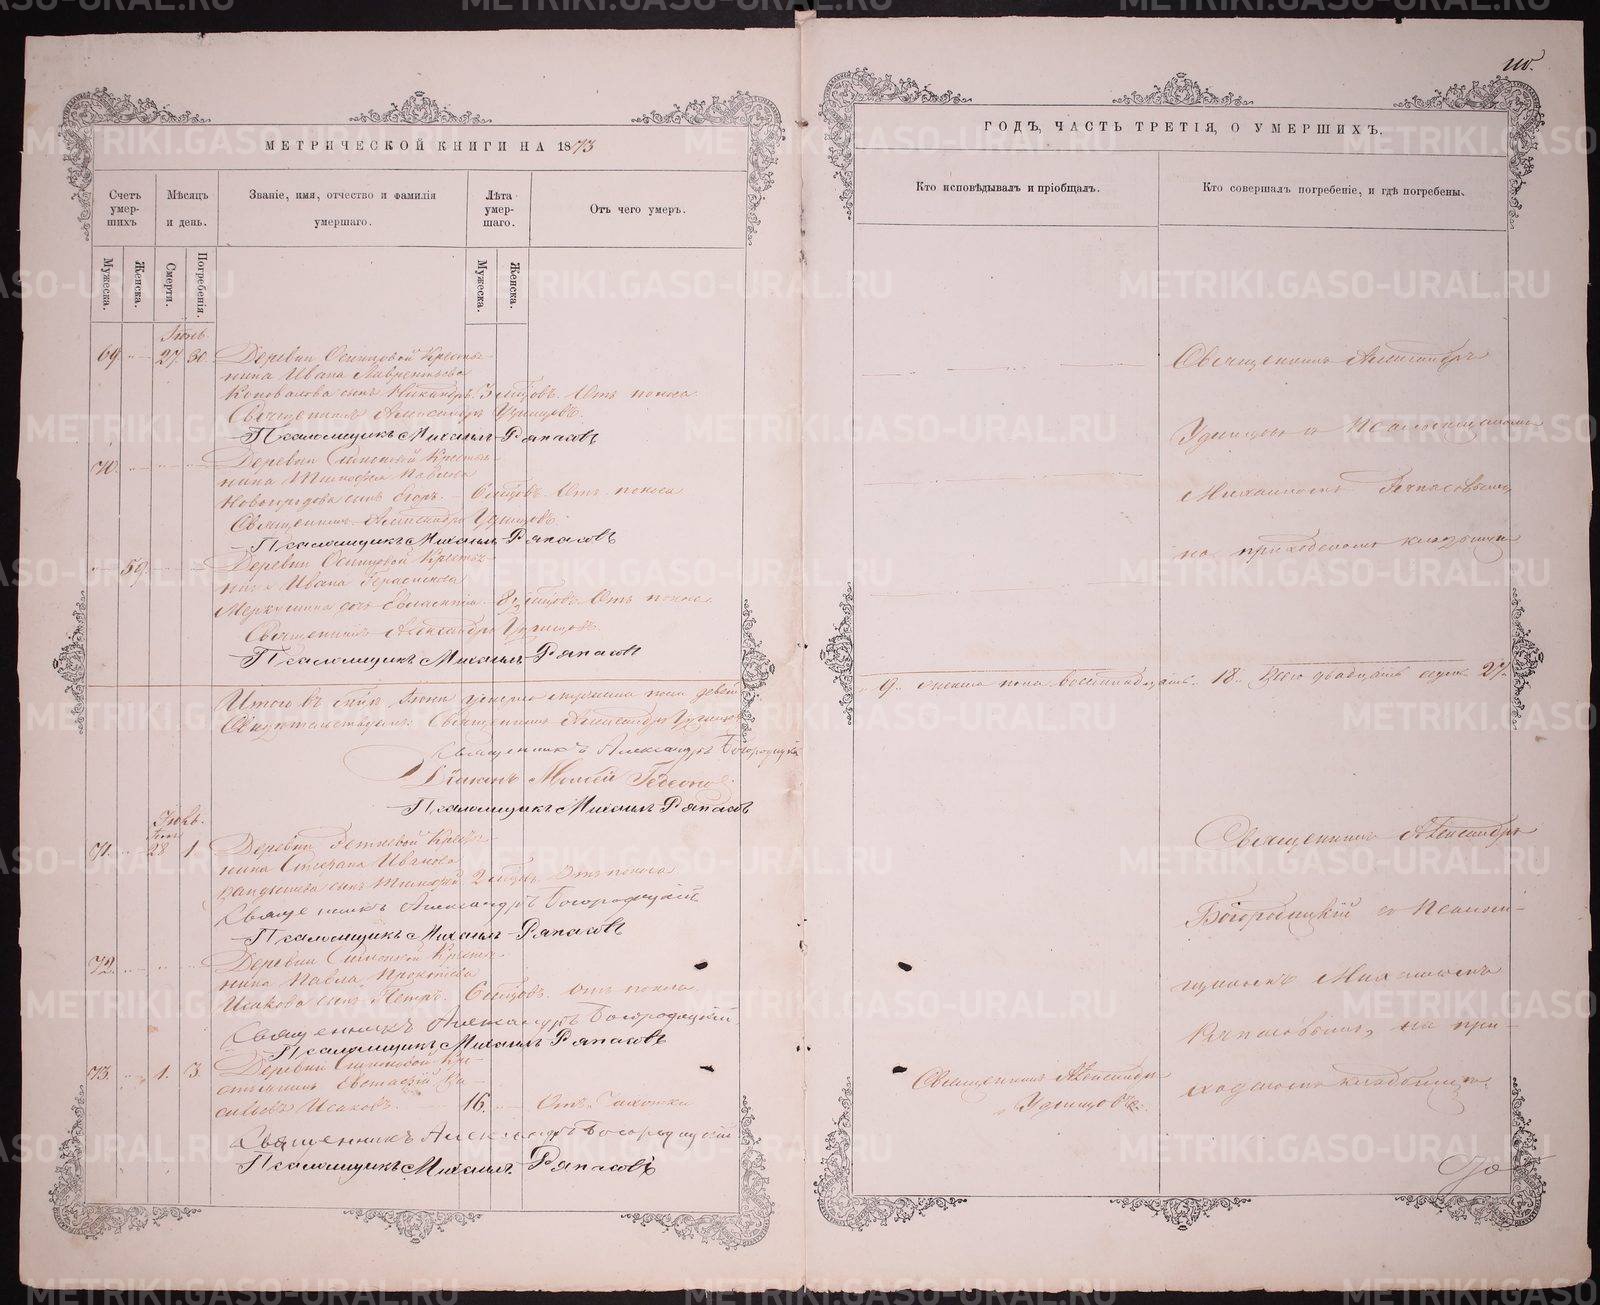 МЕТРИЧЕСКОЙ КНИГИ НА 1873
Счетъ умер-шихъ
Мѣсяцъ и день.
Званіе, имя, отчество и фамилія умершаго.
Лѣта умер-шаго.
Отъ чего умеръ.
Мужеска.
Женска.
Смерти.
Погребенія.
Мужеска.
Женска.
Іюнь.
69. 27. 30. Деревни Осинцовой Кресть-
нина Ивана Лаврентьева
Коновалова сынъ Никандръ. 3 Отъ поноса
Священникъ Александръ Удинцовъ.
Псаломщикъ Михаилъ Ряпасовъ
70. Деревни Кресть-
нина Павлова
Новогородова сынъ Егоръ. 6 Отъ поноса
Священникъ Александръ Удинцовъ.
Псаломщикъ Михаилъ Ряпасовъ
59. Деревни Осинцовой Кресть-
Ивана Герасимова
Меркушина дочь 8 Отъ поноса.
Священникъ Александръ Удинцовъ.
Псаломщикъ Михаилъ Ряпасовъ
Итого въ Іюнѣ умерло мужеска пола девять
Священникъ Александръ Удинцовъ
Священникъ Александръ Богородицкій
Псаломщикъ Михаилъ Ряпасовъ
Іюль.
71. 28 1. Деревни Кресть-
нина Степана Иванова
сынъ Тимофей 2 Отъ поноса
Священникъ Александръ Богородицкій
Псаломщикъ Михаилъ Ряпасовъ
72. Деревни Кресть-
нина Павла Прокопьева
Исакова сынъ Петръ. 6 Отъ поноса
Священникъ Александръ Богородицкій
Псаломщикъ Михаилъ Ряпасовъ
73. 1. 3. Деревни Кре-
стьянинъ Евстафій Ва-
сильевъ Исаковъ. 16. Отъ Чахотки
Священникъ Александръ Богородицкій
Псаломщикъ Михаилъ Ряпасовъ
ГОДЪ, ЧАСТЬ ТРЕТІЯ, О УМЕРШИХЪ.
Кто исповѣдывалъ и пріобщалъ.
Кто совершалъ погребеніе, и гдѣ погребены.
Священникъ Александръ
Удинцовъ съ Псаломщикомъ
Михаиломъ Ряпасовымъ
на приходскомъ кладбищѣ
9. женска пола восемнадцать 18. Всего двадцать семь 27.
Священникъ Александръ
Богородицкій съ Псалом-
щикомъ Михаиломъ
Ряпасовымъ, на при-
ходскомъ кладбищѣ.
Священникъ Александръ
Удинцовъ.
METRIKI.GASO-URAL.RU